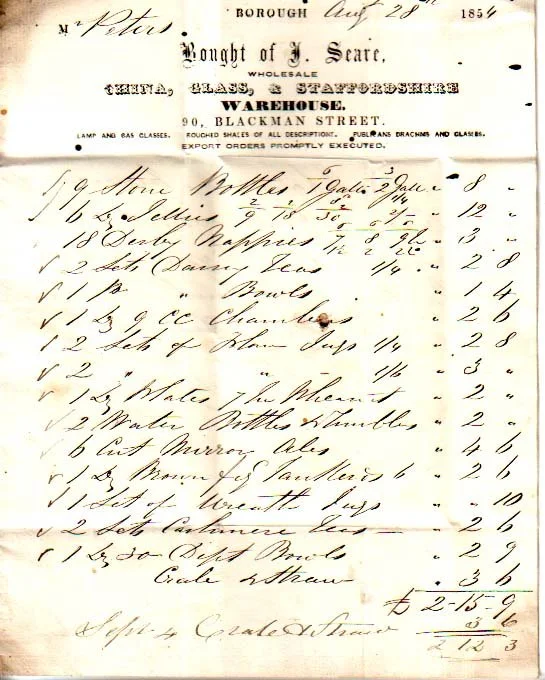 BOROUGH Augt 28th 1854
Mr Peters
Bought of J. Scare,
WHOLESALE
CHINA, GLASS, & STAFFORDSHIRE
WAREHOUSE.
90, BLACKMAN STREET.
LAMP AND GAS GLASSES. ROUGHED SHALES OF ALL DESCRIPTIONS. PUBLICANS DRACHMS AND GLASSES.
EXPORT ORDERS PROMPTLY EXECUTED.
9 Stone Bottles 6/1 Galls 3/2 Galls " 8 "
6 Dz Jellies 2/9 2/18 2/30 " 12 "
18 Derby Nappies " 3 "
2 Sets Teas 1/4 " 2 8
1 " Bowls " 1 4
1 Dz 9 CC Chambers " 2 6
2 Sets of Jugs 1/4 " 2 8
2 " " 1/6 " 3 "
1 Dz Plates 7 In Wheat " 2 "
2 Water Bottles & Tumbles " 2 "
6 Cut Mirror Ales " 4 6
1 Dz Brown fig Tankards 6 " 2 6
1 Set of Wreath Jugs " " 10
2 Sets Cashmere Teas " 2 6
1 Dz 30 Dipt Bowls " 2 9
Crate & Straw " 3 6
£ 2-15-9
Sept 4 Crate & Straw 3 6
2 12 3